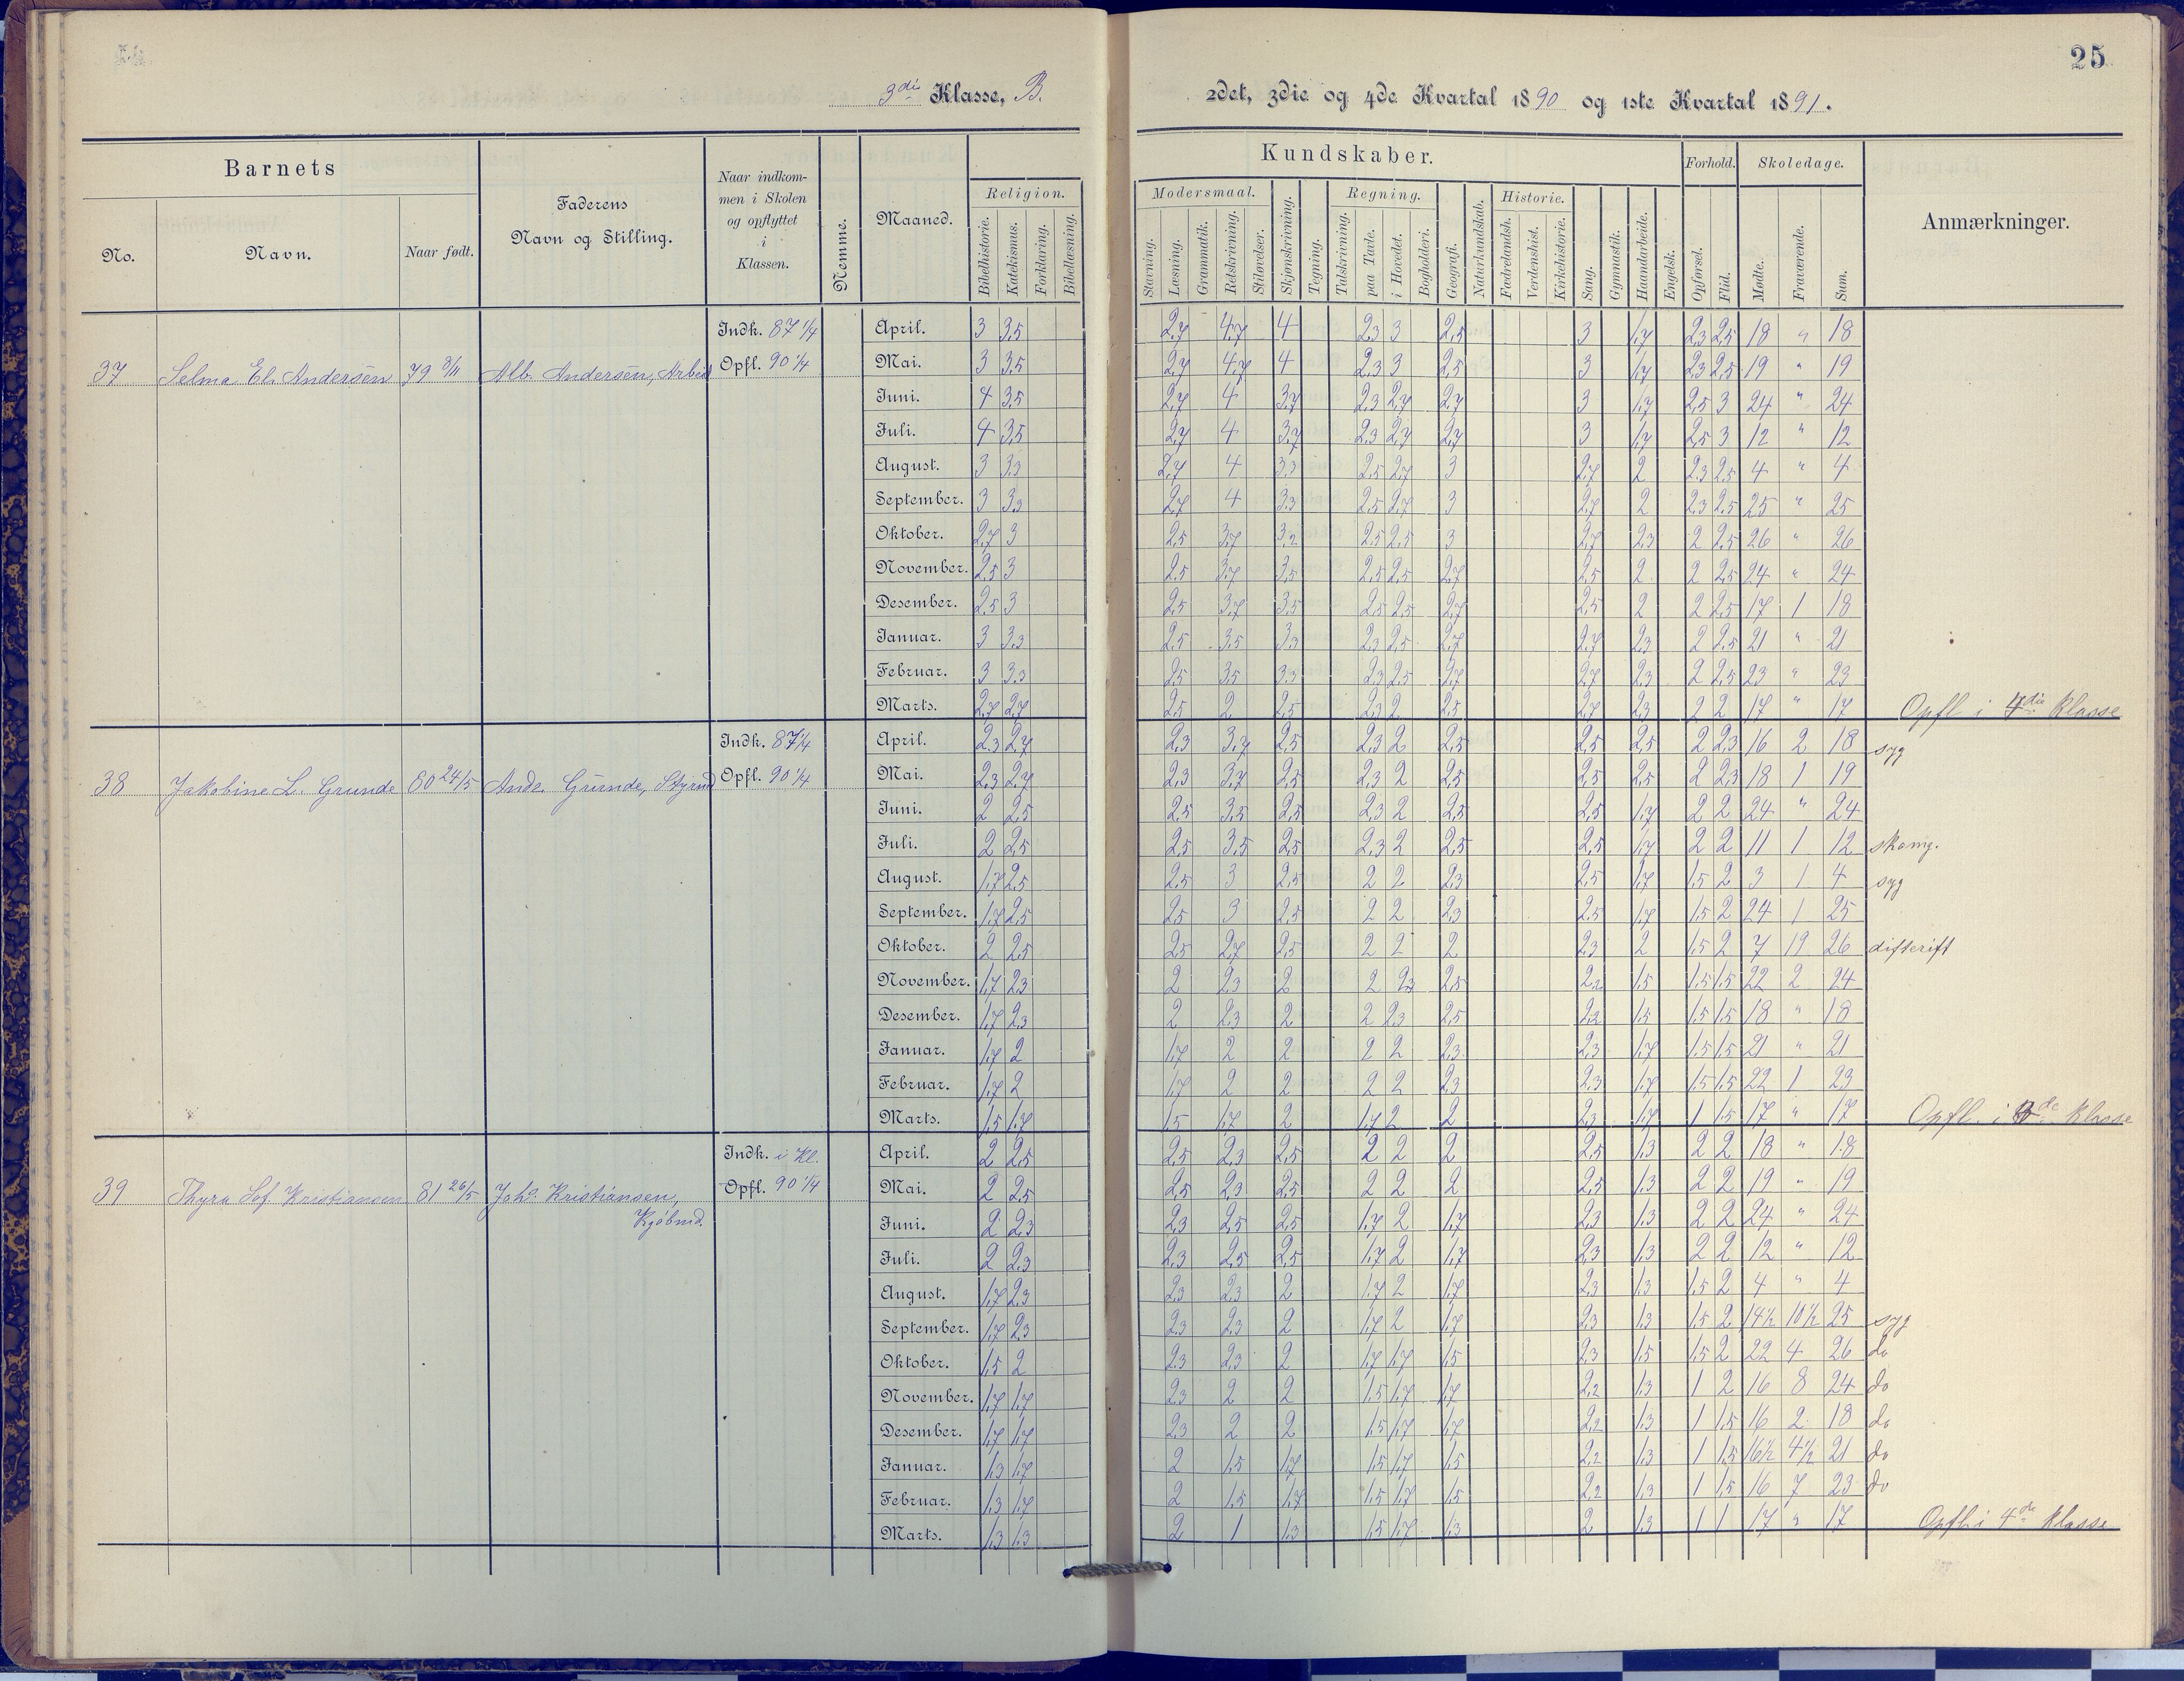 25
3die Klasse, B.
2det, 3die og 4de Kvartal 1890 og 1ste Kvartal 1891.
Barnets
No.
Navn.
Naar født.
Faderens
Navn og Stilling.
Naar indkom-
men i Skolen
og opflyttet
i
Klassen.
Nemme.
Maaned.
Kundskaber.
Religion.
Bibelhistorie.
Katekismus.
Forklaring.
Bibellæsning.
Modersmaal.
Stavning.
Læsning.
Grammatik.
Retskrivning.
Stiløvelser.
Skjønskrivning.
Tegning.
Regning.
Talskrivning.
paa Tavle.
i Hovedet.
Bogholderi.
Geografi.
Naturkundskab.
Historie.
Fædrelandsh.
Verdenshist.
Kirkehistorie.
Sang.
Gymnastik.
Haandarbeide.
Engelsk.
Forhold.
Opførsel.
Flid.
Skoledage.
Mødte.
Fraværende.
Sum.
Anmærkninger.
37 Selma El. Andersen 79 3/11 Alb. Andersen, Arbeid Indk. 87 1/4 Opfl. 90 1/4
April. 3 3,5 2,7 4,7 4 2,3 3 2,5 3 1,7 2,3 2,5 18 " 18
Mai. 3 3,5 2,7 4,7 4 2,3 3 2,5 3 1,7 2,3 2,5 19 " 19
Juni. 4 3,5 2,7 4 3,7 2,3 2,7 2,7 3 1,7 2,5 3 24 " 24
Juli. 4 3,5 2,7 4 3,7 2,3 2,7 2,7 3 1,7 2,5 3 12 " 12
August. 3 3,3 2,7 4 3,3 2,5 2,7 3 2,7 2 2,3 2,5 4 " 4
September. 3 3,3 2,7 4 3,3 2,5 2,7 3 2,7 2 2,3 2,5 25 " 25
Oktober. 2,7 3 2,5 3,7 3,2 2,5 2,5 3 2,7 2,3 2 2,5 26 " 26
November. 2,5 3 2,5 3,7 3,5 2,5 2,5 2,7 2,5 2 2 2,5 24 " 24
Desember. 2,5 3 2,5 3,7 3,5 2,5 2,5 2,7 2,5 2 2 2,5 17 1 18
Januar. 3 3,3 2,5 3,5 3,3 2,3 2,5 2,7 2,7 2,3 2 2,5 21 " 21
Februar. 3 3,3 2,5 3,5 3,3 2,3 2,5 2,7 2,7 2,3 2 2,5 23 " 23
Marts. 2,7 2,7 2,5 2 2,5 2,3 2 2,5 2,7 2,3 2 2 17 " 17 Opfl i 4die Klasse
38 Jakobine L. Grunde 80 24/5 Ande. Grunde, Styrmd Indk. 87 1/4 Opfl. 90 1/4
April. 2,3 2,7 2,3 3,7 2,5 2,3 2 2,5 2,5 2,5 2 2,3 16 2 18 syg
Mai. 2,3 2,7 2,3 3,7 2,5 2,3 2 2,5 2,5 2,5 2 2,3 18 1 19
Juni. 2 2,5 2,5 3,5 2,5 2,3 2 2,5 2,5 1,7 2 2 24 " 24
Juli. 2 2,5 2,5 3,5 2,5 2,3 2 2,5 2,5 1,7 2 2 11 1 12 skomg.
August. 1,7 2,5 2,5 3 2,5 2 2 2,3 2,5 1,7 1,5 2 3 1 4 syg
September. 1,7 2,5 2,5 3 2,5 2 2 2,3 2,5 1,7 1,5 2 24 1 25
Oktober. 2 2,5 2,5 2,7 2,5 2 2 2 2,3 2 1,5 2 7 19 26 difterift
November. 1,7 2,3 2 2,3 2 2 2,3 2,5 2,2 1,5 1,5 1,5 22 2 24
Desember. 1,7 2,3 2 2,3 2 2 2,3 2,5 2,2 1,5 1,5 1,5 18 " 18
Januar. 1,7 2 1,7 2 2 2 2 2,3 2,3 1,7 1,5 1,5 21 " 21
Februar. 1,7 2 1,7 2 2 2 2 2,3 2,3 1,7 1,5 1,5 22 1 23
Marts. 1,5 1,7 1,5 1,7 2 1,7 2 2 2,3 1,7 1 1,5 17 " 17 Opfl. i de Klasse
39 Thyra Sof. Kristiansen 81 26/5 Johs. Kristiansen, Indk. i Kl. Opfl. 90 1/4
Kjøbmd.
April. 2 2,5 2,5 2,3 2,5 2 2 2 2,5 1,3 2 2 18 " 18
Mai. 2 2,5 2,5 2,3 2,5 2 2 2 2,5 1,3 2 2 19 " 19
Juni. 2 2,3 2,3 2,5 2,5 1,7 2 1,7 2,3 1,3 2 2 24 " 24
Juli. 2 2,3 2,3 2,5 2,5 1,7 2 1,7 2,3 1,3 2 2 12 " 12
August. 1,7 2,3 2,3 2,3 2 1,7 2 1,7 2,3 1,3 1,5 2 4 " 4
September. 1,7 2,3 2,3 2,3 2 1,7 2 1,7 2,3 1,3 1,5 2 14½ 10½ 25 syg
Oktober. 1,5 2 2,3 2,3 2 1,7 1,7 1,5 2,3 1,5 1,5 2 22 4 26 do
November. 1,7 1,7 2,3 2 2 1,5 1,7 1,7 2,2 1,3 1 2 16 8 24 do
Desember. 1,7 1,7 2,3 2 2 1,5 1,7 1,7 2,2 1,3 1 1,5 16 2 18 do
Januar. 1,3 1,7 2 1,5 1,7 1,5 1,7 1,5 2,2 1,3 1 1,5 16½ 4½ 21 do
Februar. 1,3 1,7 2 1,5 1,7 1,5 1,7 1,5 2,2 1,3 1 1,5 16 7 23 do
Marts. 1,3 1,3 2 1 1,3 1,5 1,7 1,3 2 1,3 1 1 17 " 17 Opfl. i 4de Klasse